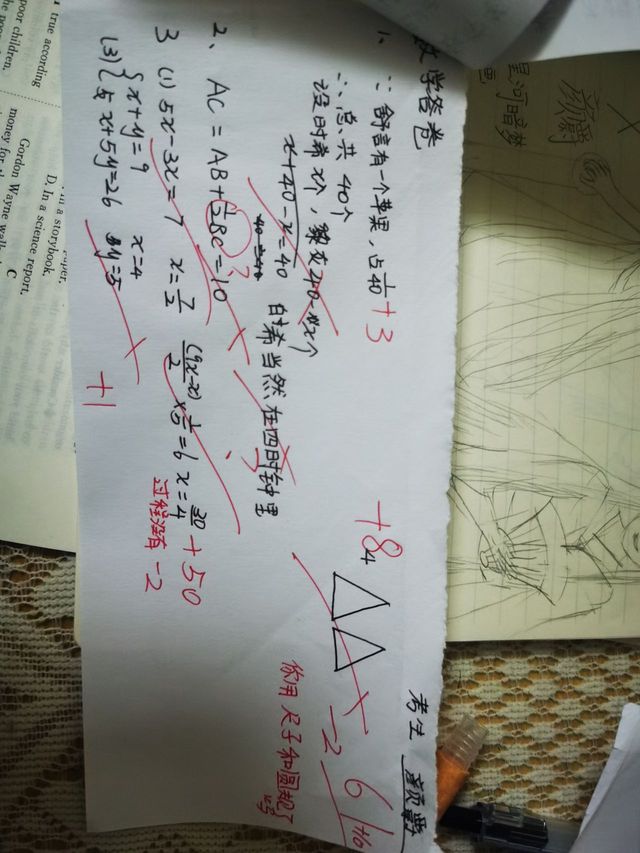 数学答卷
考生 颜爵
61
1、∵舒言有一个苹果,占1/40
+3
∴总共40个
设时希x个,黎灰40-x个
x+40-x=40
时希当然在四时钟里
2、AC=AB+1/2BC=10
?
3 (1) 5x-3x=7 x=7/2
(9x-x)/2 × 1/5=6 x=30/4
+50
(3) { x+y=9
5x+5y=26
x=4
y=5
+1
过程没有 -2
+8
4
-2
你用尺子和圆规了吗
颜爵
星河暗梦
true according
poor children.
the poor
in a storybook.
D. In a science report,
Gordon Wayne
money for
C